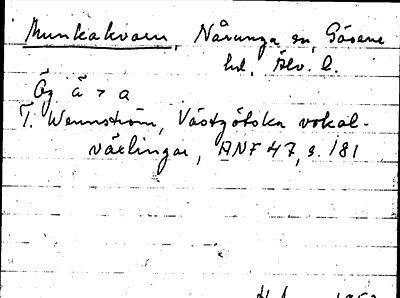 Munkakvarn, Nårunga sn, Gäsene
hd, Älv. l.
Ög ā > a
T. Wennström, Västgötska vokal-
växlingar, ANF 47, s. 181